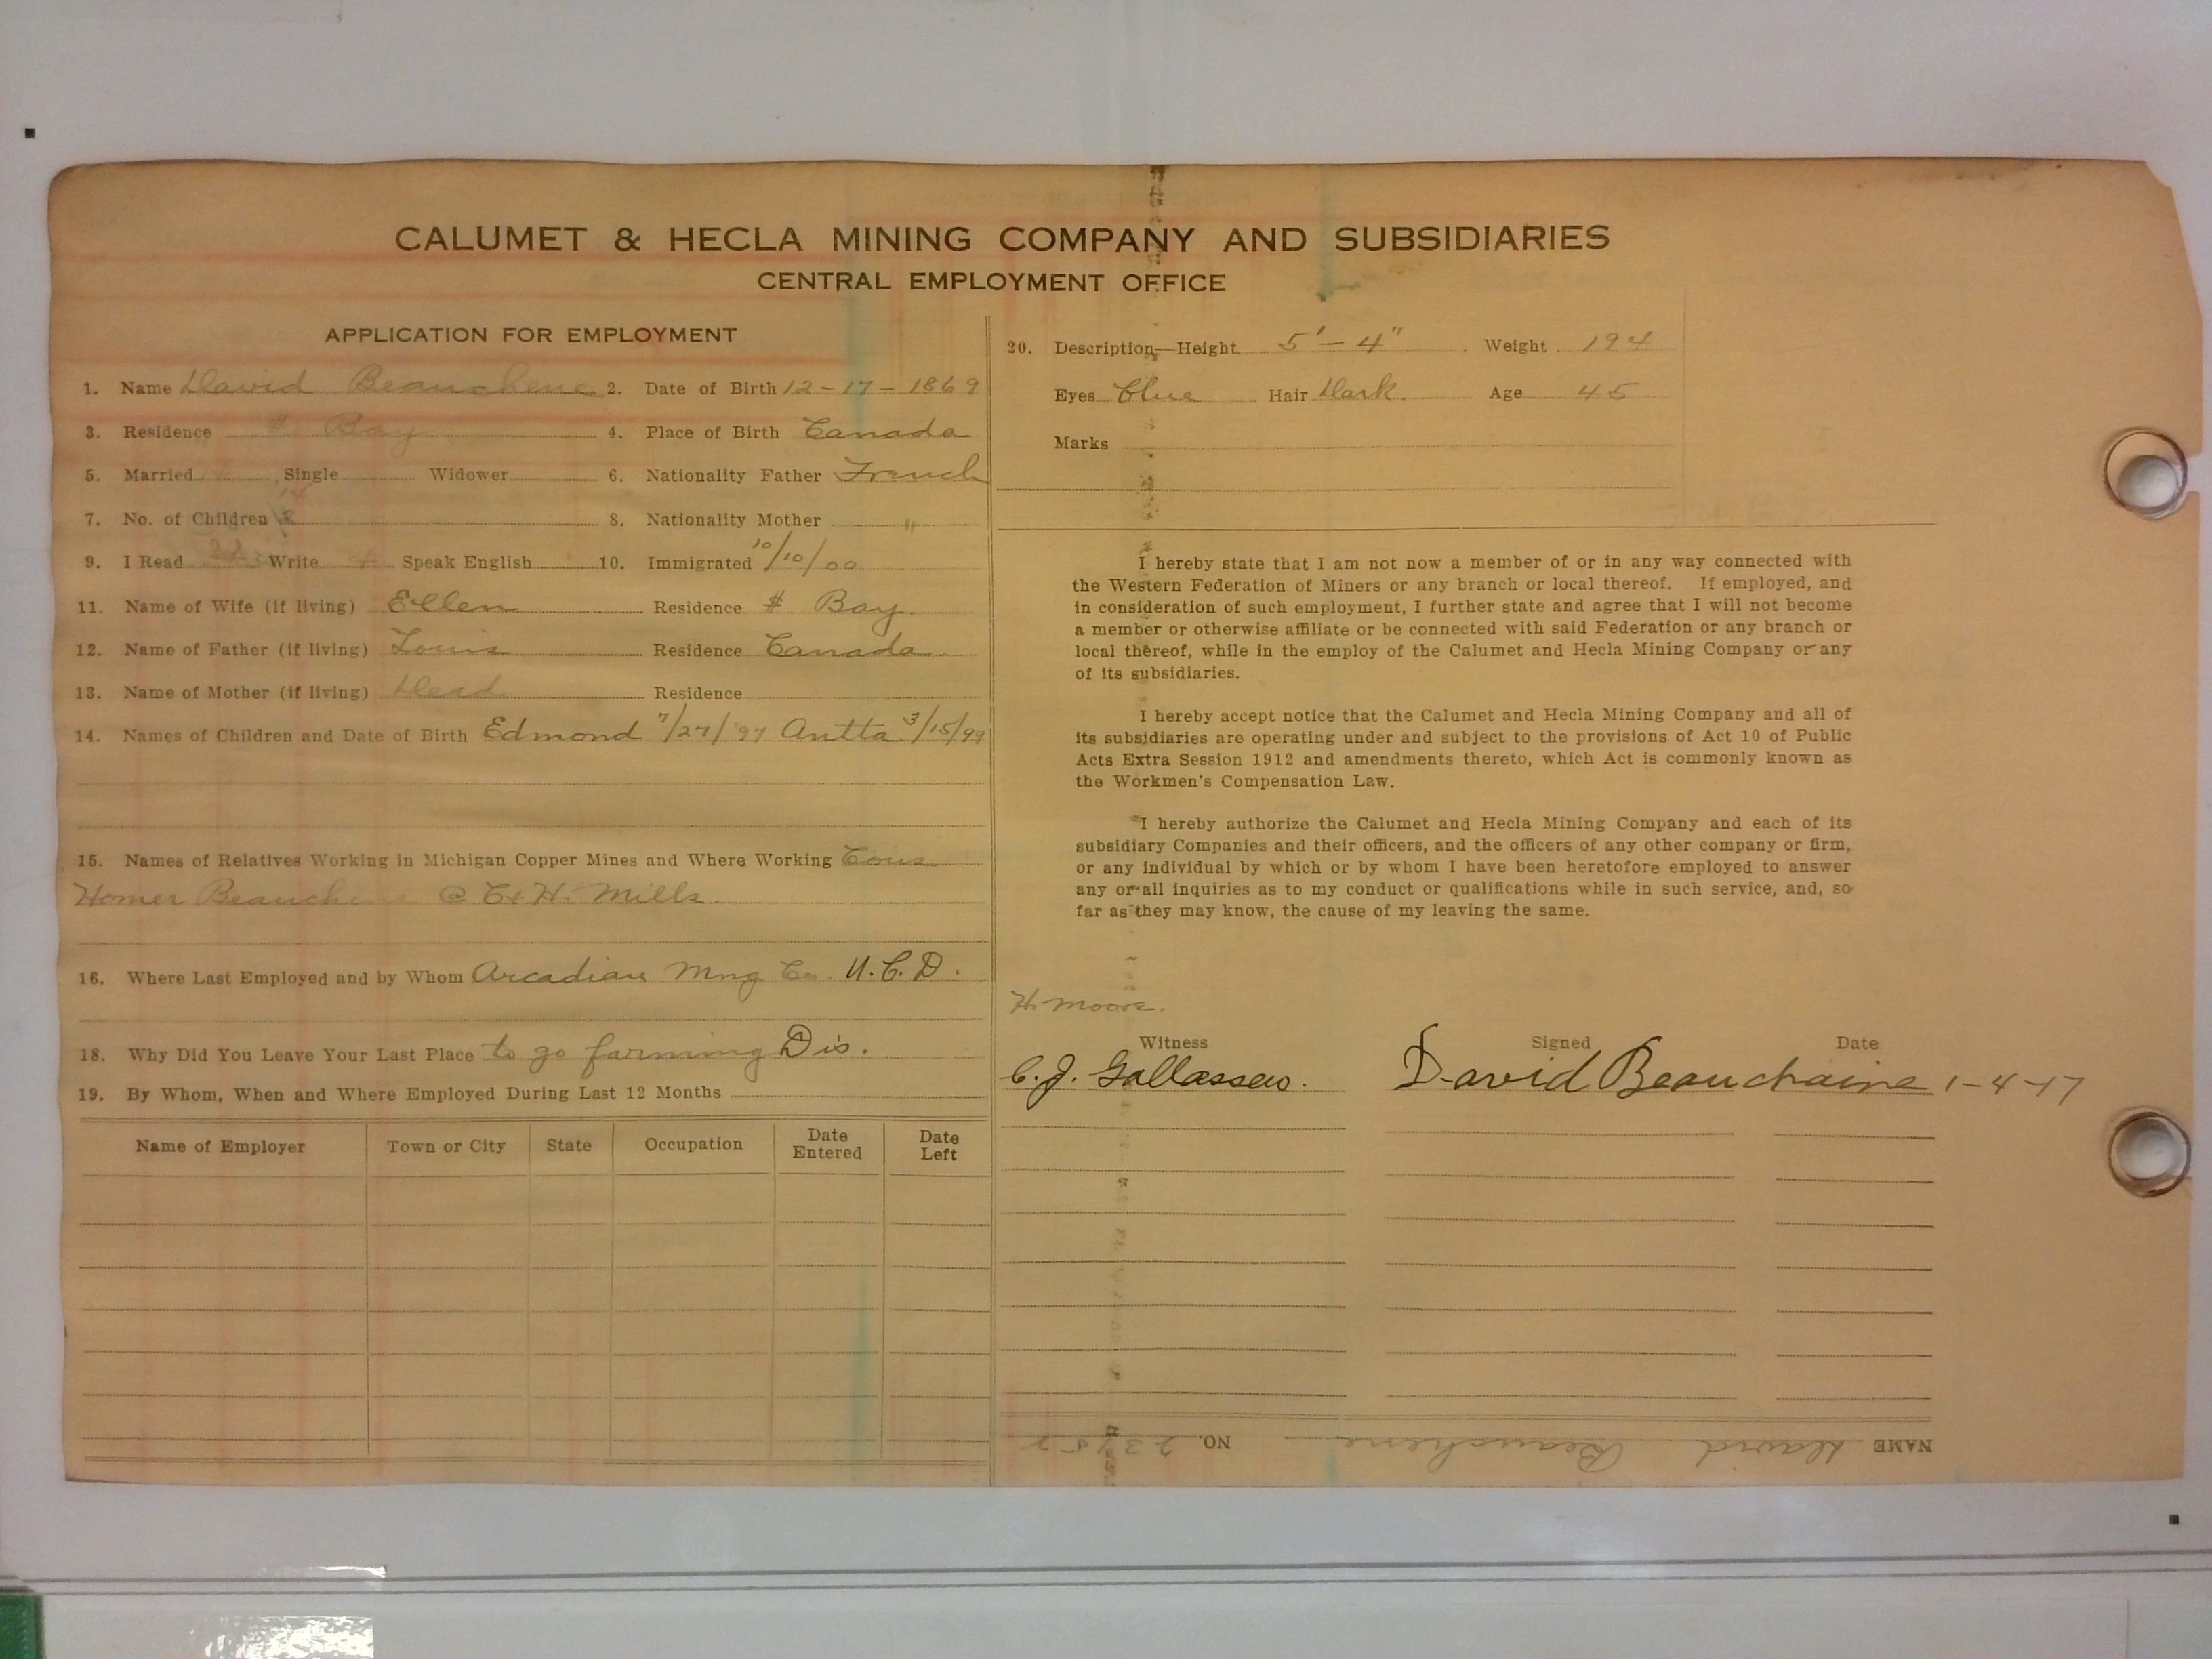 CALUMET & HECLA MINING COMPANY AND SUBSIDIARIES
CENTRAL EMPLOYMENT OFFICE
APPLICATION FOR EMPLOYMENT
1. Name David Beauchene 2. Date of Birth 12-17-1869
3. Residence # Bay 4. Place of Birth Canada
5. Married Single Widower 6. Nationality Father French
7. No. of Children 8. Nationality Mother "
9. I Read Write Speak English 10. Immigrated 10/10/00
11. Name of Wife (if living) Ellen Residence # Bay
12. Name of Father (if living) Louis Residence Canada
13. Name of Mother (if living) Dead Residence
14. Names of Children and Date of Birth Edmond 7/27/'97 Antta 3/15/99
15. Names of Relatives Working in Michigan Copper Mines and Where Working Cous
Homer Beauchene @ C+H. Mills.
16. Where Last Employed and by Whom Arcadian Mng Co. U.C.D.
18. Why Did You Leave Your Last Place to go farming Dis.
19. By Whom, When and Where Employed During Last 12 Months
Name of Employer Town or City State Occupation Date Entered Date Left
20. Description—Height 5'-4" Weight 194
Eyes Blue Hair Dark. Age 45
Marks
I hereby state that I am not now a member of or in any way connected with
the Western Federation of Miners or any branch or local thereof. If employed, and
in consideration of such employment, I further state and agree that I will not become
a member or otherwise affiliate or be connected with said Federation or any branch or
local thereof, while in the employ of the Calumet and Hecla Mining Company or any
of its subsidiaries.
I hereby accept notice that the Calumet and Hecla Mining Company and all of
its subsidiaries are operating under and subject to the provisions of Act 10 of Public
Acts Extra Session 1912 and amendments thereto, which Act is commonly known as
the Workmen's Compensation Law.
I hereby authorize the Calumet and Hecla Mining Company and each of its
subsidiary Companies and their officers, and the officers of any other company or firm,
or any individual by which or by whom I have been heretofore employed to answer
any or all inquiries as to my conduct or qualifications while in such service, and, so
far as they may know, the cause of my leaving the same.
H. Moore.
Witness Signed Date
C.J. David Beauchaine 1-4-17
NAME David Beauchene NO.